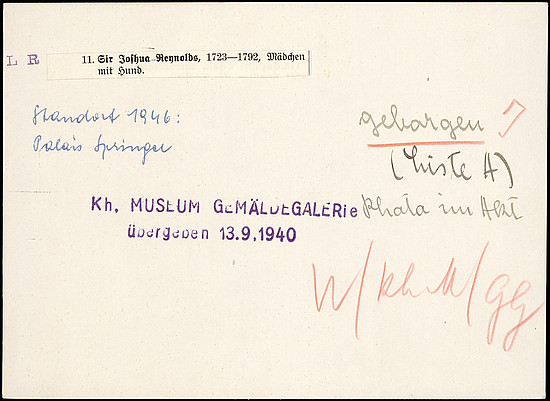 L R
11. Sir Joshua Reynolds, 1723—1792, Mädchen
mit Hund.
Standort 1946:
Palais Springer
geborgen
(Liste A)
Kh. MUSEUM GEMÄLDEGALERie
Photo im Akt
übergeben 13.9.1940
W/KhM/GG